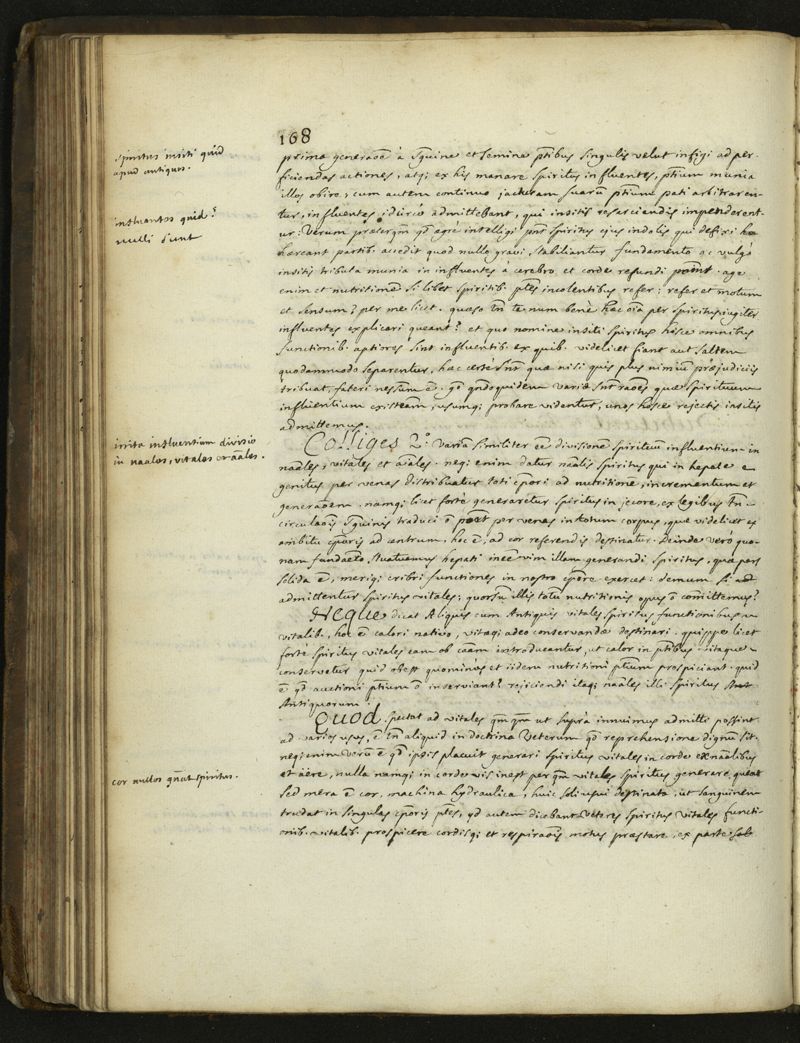 168
spiritus insiti quid
apud antiquos.
prima generaoẽ à sg̃uine et semine ptibus singulis velut infigi ad per-
ficiendas actiones, atq; ex his manare spiritus influentes, ptium munia
illos obire, cum autem continuo jacturam suarũ ptium pati arbitraren-
tur, influentes idcirco admittebant, qui insitis resarciendis impenderent-
influentes quid?
nulli sunt
ur: Verum præterqm̃ qd̃ ægrè intelligi pñt spiritus ejus indolis qui defixi
hæreant partib. accedit quod nullo gravi stabiliantur fundamento ac vulgò
insitis tributa munia in influentes à cerebro et corde refundi possint. age
enim et nutritionẽ si libet spiritib. ptes incolentibus refer; refer et motum
et sensum? per me licet. quæso tñ te num benè hæc oĩa per spiritus jugiter
influentes explicari queant? et quo nomine insiti spiritus hisce omnibus
functionib. aptiores sint influentib. ex quib. videlicet fiant aut saltem
quodammodo separentur, hæc certè snt quæ nisi quis plus nimiũ præjudiciis
tribuat, fateri nessum ẽ. gõ qñdoquidem variæ snt raões quæ spirituum
influentium existẽam, usumq; probare videntur, unos hosce rejectis insitis
admittemus.
irrita influentium divisio
in naales, vitales et aãles.
Colliges 2.º Variam similiter ẽe divisionẽ spirituũ influentium in
naãles, vitales et aĩales. neq; enim datur naãlis spiritus qui in hepate
genitus per venas distribuatur toti cpori ad nutritionẽ, incrementum et
generaõem. namq; licet fortè generaretur spiritus in jecore, ex legibus tñ
circulaõis sg̃uinis traduci ẽ per venas in totum corpus, quæ videlicet ex
ambitu cporis ad centrum, hoc ẽ, ad cor referendis destinatur. Deinde verò quo-
nam fundaẽto, statuemus hepati inẽe vim illam generandi spiritus, quæ pars
solida ẽ, meriq; cribri functiones in nostro cpore exercet: demum si
admittentur spiritus vitales; quorsũ illis totũ nutritionis opus õ comittemus?
Neque dicat Aliquis cum Antiquis vitales spiritus functionibus
vitalib. hoc ẽ calori nativo, vitæq; adeo conservandæ destinari. quippe licet
fortè spiritus vitales eam ob cãam introducantur, ut calor in ptibus vitaque
conservetur quid obest quominus et iidem nutritioni ptium prospiciant. quid
ẽ qd̃ auctioni ptium õ inserviant? rejiciendi itaq; naãles illi spiritus
Antiquorum.
Quod spectat ad vitales qm̃qm̃ ut suprà innuimus admitti possint
ad varios usus, ẽ tñ aliquid in doctrina Veterum qd̃ reprehensione dignũ sit.
neq; enim verũ ẽ qd̃ ipsis placuit generari spiritus vitales in corde ex naãlibus
cor nullos gñat spiritus.
et aëre, nulla namq; in corde vis inest per qm̃ vitales spiritus generare queat
sed mera ẽ cor, machina hydraulica, huic soli usui destinata, ut sanguinem
trudat in singulas cporis ptes, qd autem dicebant Veteres spiritus vitales functi-
onib. vitalib. prospicere cordisq; et respiraõis motus præstare, ex parte